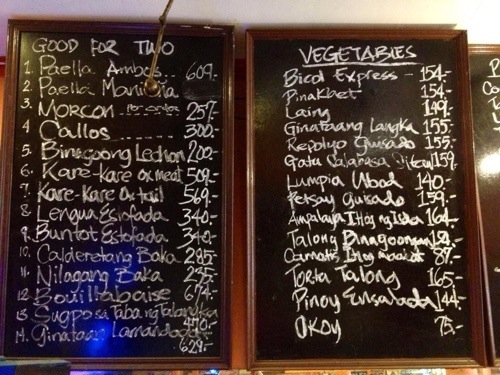 GOOD FOR TWO
1. Paella Ambos... 609.-
2. Paella
3. MORCON 257.-
4 Callos ...... 300.-
5. Binagoong Lechon 200.-
6. Kare-Kare Ox meat 509.-
7. Kare-Kare Oxtail 569.-
8. Lengua Estofada 340.-
9. Buntot Estofada 340.-
10. Caldereta Baka 285-
11. Nilagang Baka 235-
12 Bouillabaise 674.-
13 Sugpo sa Taba ng Talangka
490.-
14. Ginataan
629.-
VEGETABLES
Bicol Express - 154.-
Pinakbet 154.-
Laing 149.-
Ginataang Langka 155.-
Repolyo Guisado 155.-
Gata Calabasa Sitaw 159
Lumpia Ubod 140.-
Petsay Guisado 159.-
Ampalaya Itlog ng 164.-
Talong Binagoongan
Camatis Itlog 89.-
Torta Talong 165.-
Pinoy Ensalada 144.-
OKOY 75.-